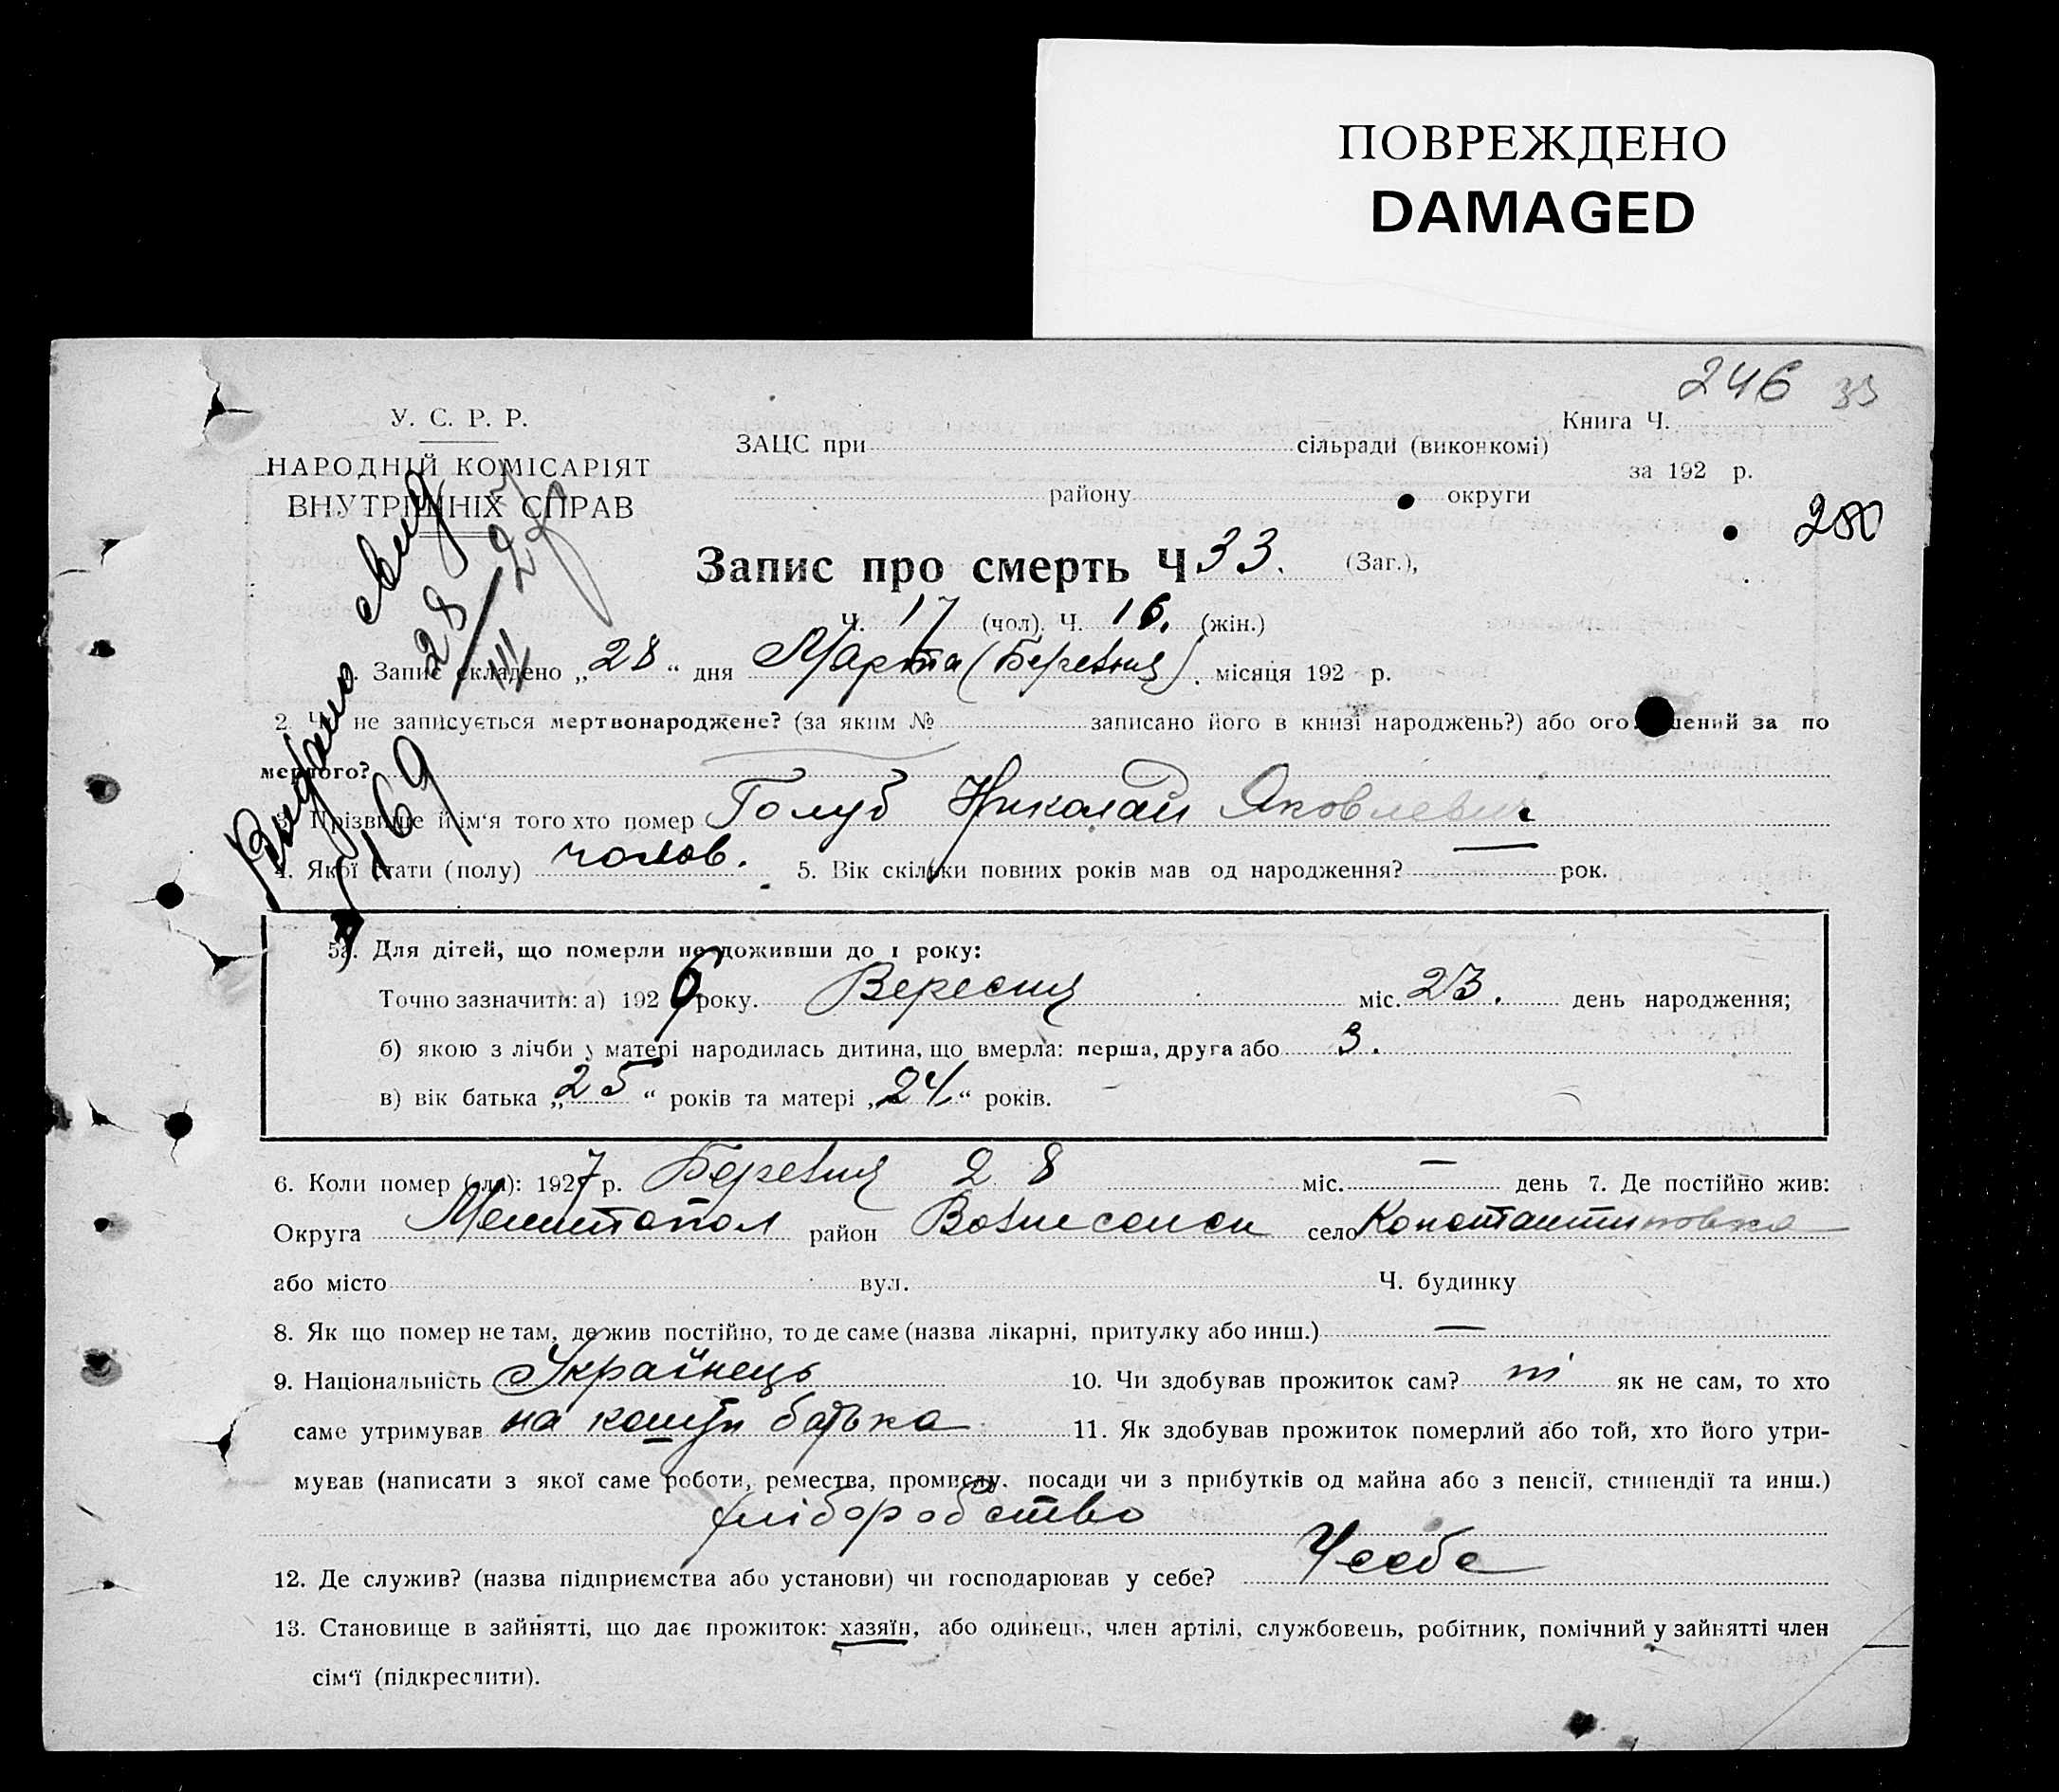 ПОВРЕЖДЕНО
DAMAGED
246 33
У. С. Р. Р.
НАРОДНІЙ КОМІСАРІЯТ
ВНУТРІШНІХ СПРАВ
ЗАЦС при сільради (виконкомі)
району округи
Книга Ч.
за 192 р.
280
Видано
28/III 27
№ 169
Запис про смерть Ч 33. (Заг.),
Ч. 17 (чол). Ч. 16. (жін.)
1. Запис складено „28“ дня Марта (Березня). місяця 192 р.
2. Чи не записується мертвонароджене? (за яким № записано його в книзі народжень?) або оголошений за по
мерлого?
3. Прізвище й ім'я того хто помер Голуб Николай Яковлевич
4. Якої стати (полу) чолов. 5. Вік скільки повних років мав од народження? — рок.
5а. Для дітей, що померли не доживши до 1 року:
Точно зазначити: а) 1926 року. Вересня міс. 23. день народження;
б) якою з лічби у матері народилась дитина, що вмерла: перша, друга або 3.
в) вік батька „25“ років та матері „24“ років.
6. Коли помер (ла): 1927 р. Березня 28 міс. — день 7. Де постійно жив:
Округа Мелитопол район Вознесенск село Константиновка
або місто вул. Ч. будинку
8. Як що помер не там, де жив постійно, то де саме (назва лікарні, притулку або инш.) —
9. Національність Українець 10. Чи здобував прожиток сам? ні як не сам, то хто
саме утримував на кошти батька 11. Як здобував прожиток померлий або той, хто його утри-
мував (написати з якої саме роботи, ремества, промислу, посади чи з прибутків од майна або з пенсії, стипендії та инш.)
хліборобство
12. Де служив? (назва підприємства або установи) чи господарював у себе? У себе
13. Становище в зайнятті, що дає прожиток: хазяїн, або одинець, член артілі, службовець, робітник, помічний у зайнятті член
сім'ї (підкреслити).